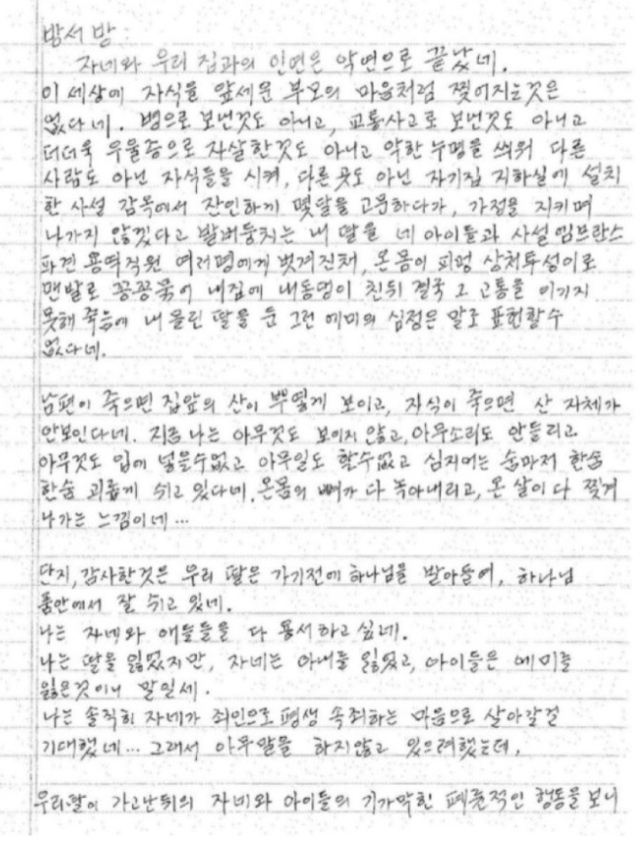 방서방:
자네와 우리 집과의 인연은 악연으로 끝났네.
이 세상에 자식을 앞세운 부모의 마음처럼 찢어지는것은
없다네. 병으로 보낸것도 아니고, 교통사고로 보낸것도 아니고
더더욱 우울증으로 자살한것도 아니고 악한 누명을 씌워 다른
사람도 아닌 자식들을 시켜, 다른 곳도 아닌 자기집 지하실에 설치
한 사설 감옥에서 잔인하게 몇달을 고문하다가, 가정을 지키며
나가지 않겠다고 발버둥치는 내 딸을 네 아이들과 사설 엠브란스
파견 용역직원 여러명에게 벗겨진채, 온몸이 피멍 상처투성이로
맨발로 꽁꽁묶어 내집에 내동댕이 친뒤 결국 그 고통을 이기지
못해 죽음에 내 몰린 딸을 둔 그런 에미의 심정은 말로 표현할수
없다네.
남편이 죽으면 집앞의 산이 뿌옇게 보이고, 자식이 죽으면 산 자체가
안보인다네. 지금 나는 아무것도 보이지 않고, 아무소리도 안들리고
아무것도 입에 넣을수없고 아무일도 할수없고 심지어는 숨마저 한숨
한숨 괴롭게 쉬고 있다네. 온몸의 뼈가 다 녹아내리고, 온 살이 다 찢겨
나가는 느낌이네…
단지, 감사한것은 우리 딸은 가기전에 하나님을 받아들여, 하나님
품안에서 잘 쉬고 있네.
나는 자네와 애들들을 다 용서하고 싶네.
나는 딸을 잃었지만, 자네는 아내를 잃었고, 아이들은 에미를
잃은것이니 말일세.
나는 솔직히 자네가 죄인으로 평생 속죄하는 마음으로 살아갈걸
기대했네… 그래서 아무말을 하지않고 있으려했는데,
우리딸이 가고난뒤의 자네와 아이들의 기가막힌 패륜적인 행동을 보니